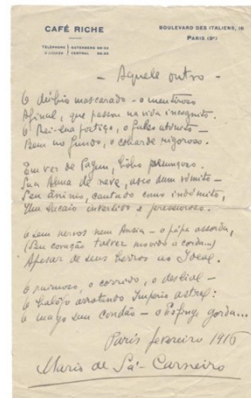 CAFÉ RICHE
BOULEVARD DES ITALIENS, 16
PARIS (9e)
TÉLÉPHONE
GUTENBERG
CENTRAL
— Aquele outro —
O dúbio mascarado — o mentiroso
Afinal, que passou na vida incógnito.
O Rei-lua postiço, o falso atónito —
Bem no fundo, o cobarde rigoroso.
Em vez de Pajem, bobo presunçoso.
Sua Alma de neve, asco dum vómito —
Seu ânimo, cantado como indómito,
Um lacaio invertido e pressuroso.
O sem nervos nem Ânsia — o papa-açorda,
(Seu coração talvez movido a corda...)
Apesar de seus berros ao Ideal.
O raimoso, o corrido, o desleal —
O balofo arrotando Império astral:
O mago sem condão — o Esfinge gorda...
Paris fevereiro 1916
Mário de Sá-Carneiro